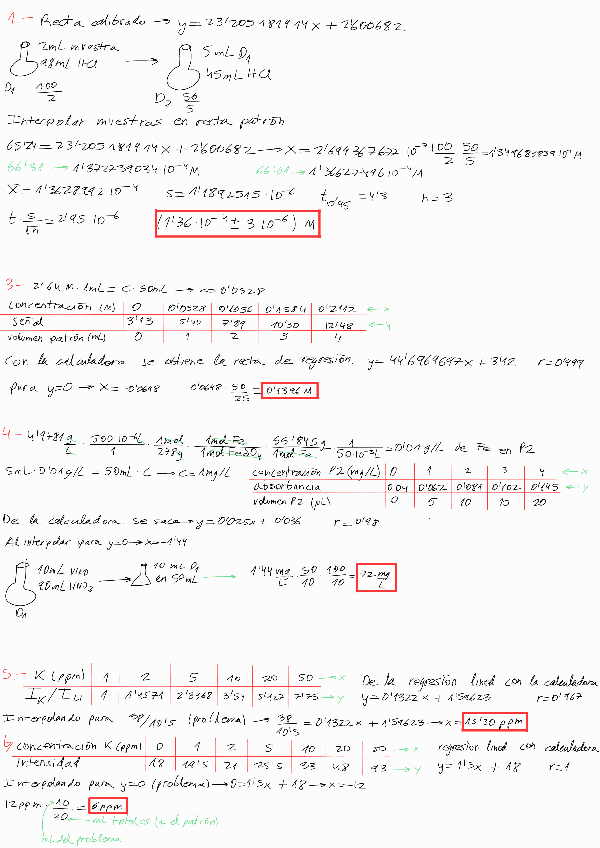 1.- Recta calibrado → y = 23'205181914x + 2'600682.
2mL muestra
98mL HCl
D1 100/2
5mL D1
45mL HCl
D2 50/5
Interpolar muestras en recta patrón
65'21 = 23'205181914x + 2'600682 → x = 2'694367672 · 10^-7 100/2 · 50/5 = 1'349683839 10^-4 M
66'31 → 1'372239034 10^-4 M
66'01 → 1'366277496 10^-4 M
X̄ = 1'3628992 10^-4 s = 1'1892515 · 10^-6 t 0'95 = 4'3 n = 3
t s/√n = 2'95 10^-6 (1'36 · 10^-4 ± 3 10^-6) M
3.- 2'64 M · 1mL = C · 50mL → C = 0'0528
Concentración (M) 0 0'0528 0'1056 0'1584 0'2112 ← x
Señal 3'13 5'40 7'89 10'30 12'48 ← y
volumen patrón (mL) 0 1 2 3 4
Con la calculadora se obtiene la recta de regresión. y = 44'6969697x + 3'12 r = 0'999
para y=0 → x = -0'0698 0'0698 · 50/25 = 0'1396 M
4.- 4'9781 g/L · 500·10^-6 L/1 · 1mol/278g · 1mol Fe/1mol FeSO4 · 55'845g/1mol Fe · 1/50·10^-3 L = 0'01 g/L de Fe en P2
5mL · 0'01g/L = 50mL · C → C = 1mg/L
concentración P2 (mg/L) 0 1 2 3 4 ← x
absorbancia 0.04 0'062 0'081 0'102 0'145 ← y
volumen P2 (µL) 0 5 10 15 20
De la calculadora se saca → y = 0'025x + 0'036 r = 0'98
Al interpolar para y=0 → x = -1'44
10mL vino
90mL HNO3
D1
10 mL D1
en 50mL
1'44 mg/L · 50/10 · 100/10 = 72 mg/L
5.- K (ppm) 1 2 5 10 20 50 → x
I_K / I_Li 1 1'1571 2'3368 3'51 5'127 7'73 → y
De la regresión lineal con la calculadora
y = 0'1322x + 1'59623 r = 0'967
Interpolando para 38/10'5 (problema) → 38/10'5 = 0'1322x + 1'59623 → x = 15'30 ppm
6 concentración K (ppm) 0 1 2 5 10 20 50 → x
intensidad 18 19'5 21 25'5 33 48 93 → y
regresión lineal con calculadora
y = 1'5x + 18 r = 1
Interpolando para y=0 (problema) → 0 = 1'5x + 18 → x = -12
12ppm · 10/20 = 6ppm
mL totales (+ el patrón)
mL del problema